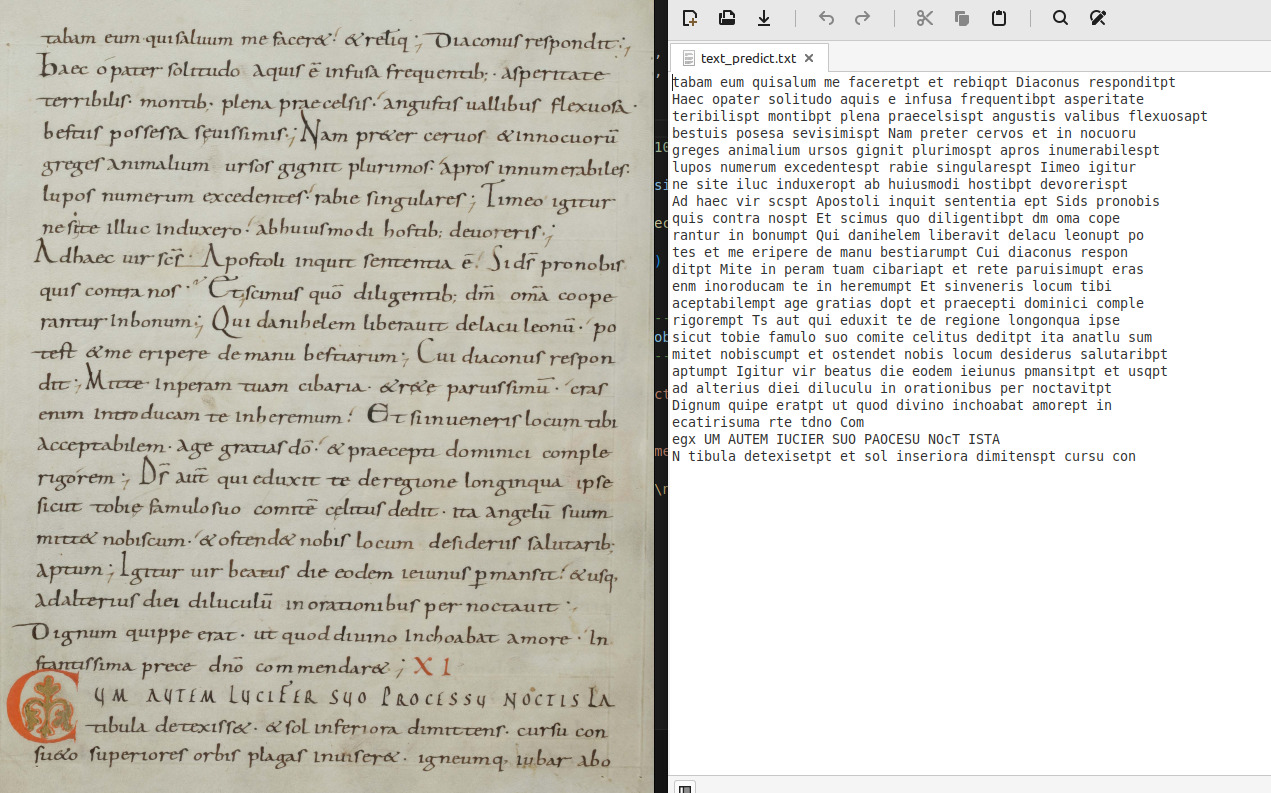 tabam eum qui saluum me facer&. & reliq; Diaconus respondit:;
Haec o pater solitudo aquis ē infusa frequentib; asperitate
terribilis· montib; plena praecelsis· angustis uallibus flexuosa·
bestiis possessa sęuissimis:; Nam pr&er ceruos & innocuorū
greges animalium ursos gignit plurimos· apros innumerabiles·
lupos numerum excedentes· rabie singulares; Timeo igitur
ne si te illuc induxero· ab huiusmodi hostib; deuoreris:;
Ad haec uir scs̄ Apostoli inquit sententia ē. Si ds̄ pro nobis
quis contra nos· Et scimus quō diligentib; dm̄ omā coope
rantur in bonum; Qui danihelem liberauit de lacu leonū· po
test & me eripere de manu bestiarum; Cui diaconus respon
dit; Mitte in peram tuam cibaria· & r&e paruissimū· cras
enim introducam te in heremum. Et si inueneris locum tibi
acceptabilem· age gratias dō· & praecepti dominici comple
rigorem; Ds̄ aut̄ qui eduxit te de regione longinqua ipse
sicut tobię famulo suo comitē cęlitus dedit· ita angelū suum
mitt& nobiscum· & ostend& nobis locum desideriis salutarib;
aptum; Igitur uir beatus die eodem ieiunus ꝑmansit. & usq,
ad alterius diei diluculū in orationibus per noctauit:,
Dignum quippe erat· ut quod diuino inchoabat amore· In
stantissima prece dnō commendar&; XI
CUM AUTEM LUCIFER SUO PROCESSU NOCTIS LA
tibula detexiss&· & sol inferiora dimittens· cursu con
su&o superiores orbis plagas inuiser&· igneumq, iubar abo
text_predict.txt
tabam eum quisalum me faceretpt et rebiqpt Diaconus responditpt
Haec opater solitudo aquis e infusa frequentibpt asperitate
teribilispt montibpt plena praecelsispt angustis valibus flexuosapt
bestuis posesa sevisimispt Nam preter cervos et in nocuoru
greges animalium ursos gignit plurimospt apros inumerabilespt
lupos numerum excedentespt rabie singularespt Iimeo igitur
ne site iluc induxeropt ab huiusmodi hostibpt devorerispt
Ad haec vir scspt Apostoli inquit sententia ept Sids pronobis
quis contra nospt Et scimus quo diligentibpt dm oma cope
rantur in bonumpt Qui danihelem liberavit delacu leonupt po
tes et me eripere de manu bestiarumpt Cui diaconus respon
ditpt Mite in peram tuam cibariapt et rete paruisimupt eras
enm inoroducam te in heremupt Et sinveneris locum tibi
aceptabilempt age gratias dopt et praecepti dominici comple
rigorempt Ts aut qui eduxit te de regione longonqua ipse
sicut tobie famulo suo comite celitus deditpt ita anatlu sum
mitet nobiscumpt et ostendet nobis locum desiderus salutaribpt
aptumpt Igitur vir beatus die eodem ieiunus pmansitpt et usqpt
ad alterius diei diluculu in orationibus per noctavitpt
Dignum quipe eratpt ut quod divino inchoabat amorept in
ecatirisuma rte tdno Com
egx UM AUTEM IUCIER SUO PAOCESU NOcT ISTA
N tibula detexisetpt et sol inseriora dimitenspt cursu con